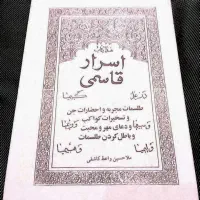 اسرار
قاسمی
در علم کیمیا
طلسمات مجربه و احضارات جن
و تسخیرات کواکب
و دعای مهر و محبت
و باطل کردن طلسمات
ملا حسین واعظ کاشفی